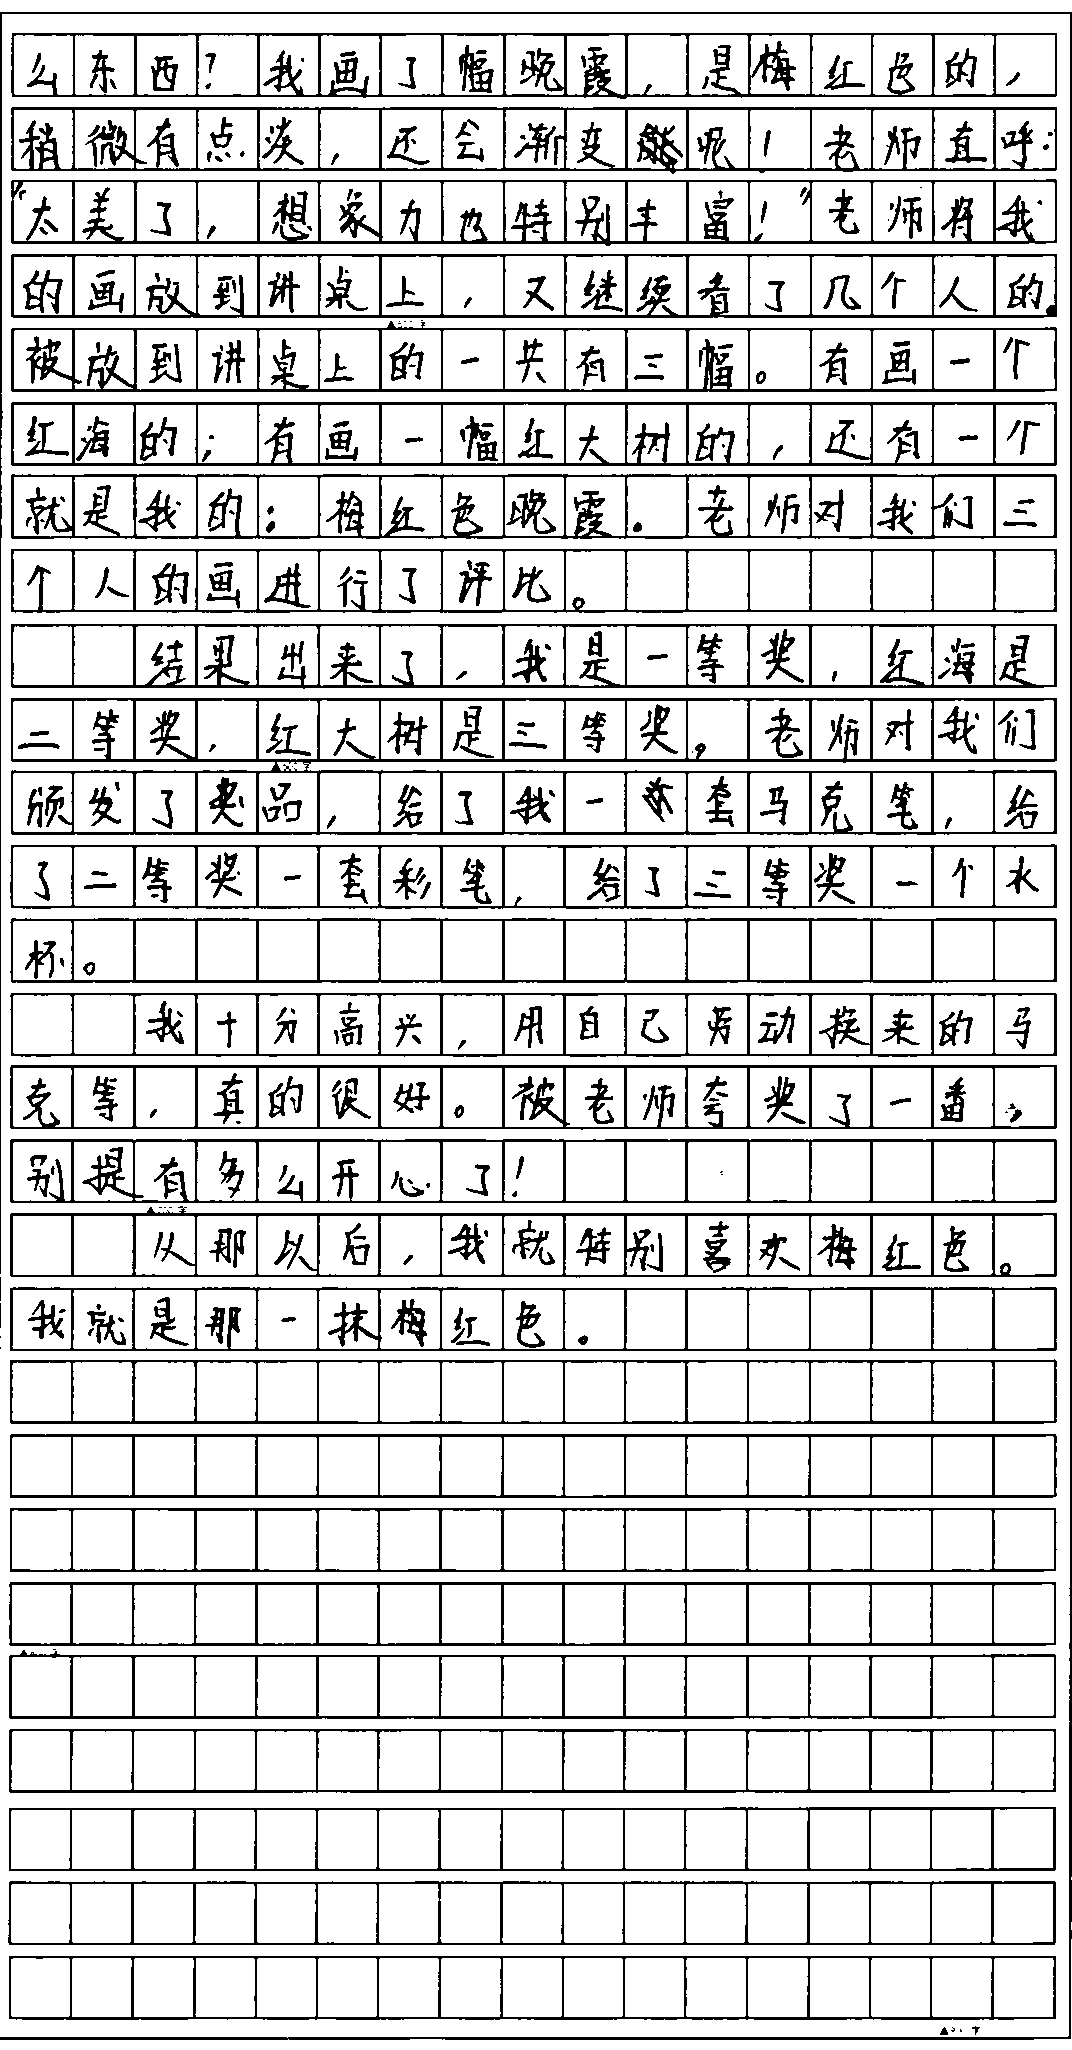 么东西？我画了幅晚霞，是梅红色的，
稍微有点淡，还会渐变呢！老师直呼：
“太美了，想象力也特别丰富！”老师将我
的画放到讲桌上，又继续看了几个人的。
被放到讲桌上的一共有三幅。有画一个
红海的；有画一幅红大树的，还有一个
就是我的：梅红色晚霞。老师对我们三
个人的画进行了评比。
结果出来了，我是一等奖，红海是
二等奖，红大树是三等奖。老师对我们
颁发了奖品，给了我一套马克笔，给
了二等奖一套彩笔，给了三等奖一个水
杯。
我十分高兴，用自己劳动换来的马
克等，真的很好。被老师夸奖了一番，
别提有多么开心了！
从那以后，我就特别喜欢梅红色。
我就是那一抹梅红色。